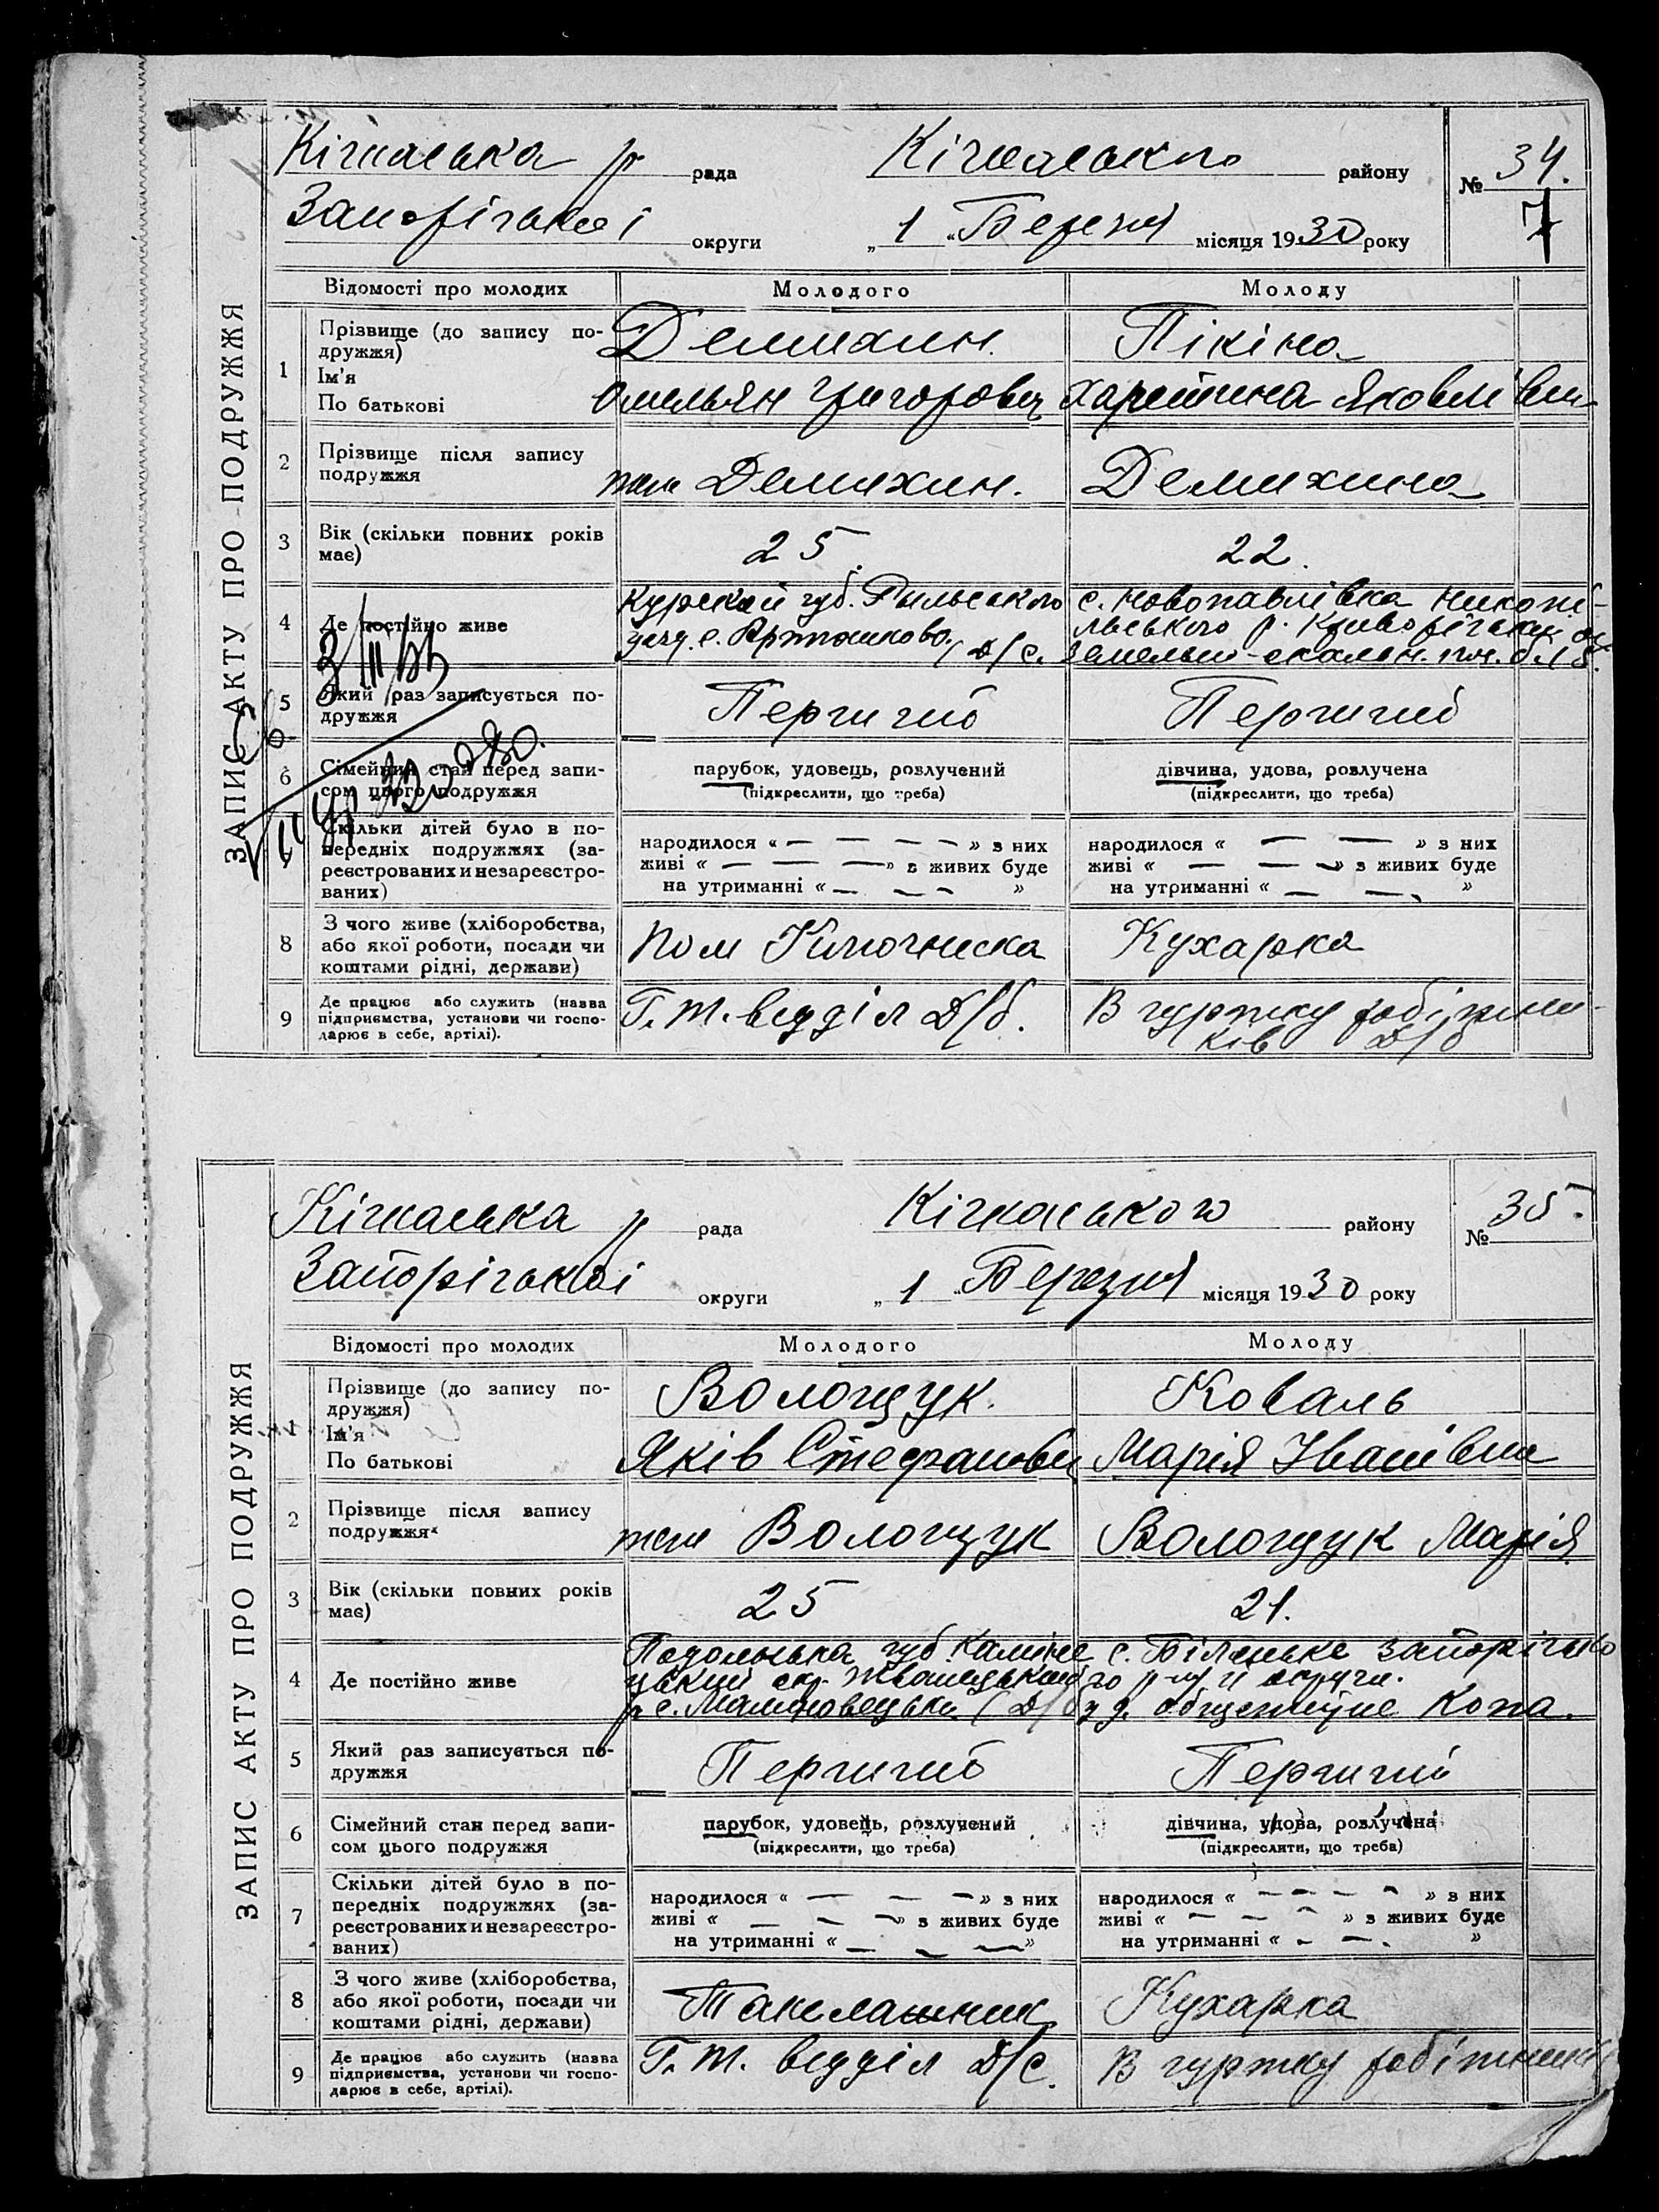 ЗАПИС АКТУ ПРО ПОДРУЖЖЯ
Кічкаська р рада Кічкаського району № 34.
Запорізької округи „1“ Березня місяця 1930 року 7
Відомості про молодих Молодого Молоду
1 Прізвище (до запису по-
дружжя) Демихин. Пікіна
Ім'я
По батькові Омельян Григорович Харетина Яковлівна
2 Прізвище після запису
подружжя теж Демихин. Демихина
3 Вік (скільки повних років
має) 25. 22.
4 Де постійно живе
Курской губ. Рыльського
уезд. с. (Д/С.
с. Новопавлівка Никопі-
льського р. Криворізьк. ок
5 Який раз записується по-
дружжя Перший Перший
6 Сімейний стан перед запи-
сом цього подружжя
парубок, удовець, розлучений дівчина, удова, розлучена
(підкреслити, що треба) (підкреслити, що треба)
Скільки дітей було в по-
передніх подружжях (за-
реєстрованих и незареєстро-
ваних)
народилося « — — — — » з них народилося « — — » з них
живі « — — — » з живих буде живі « — — — » з живих буде
на утриманні « — — — » на утриманні « — — »
8 З чого живе (хліборобства,
або якої роботи, посади чи
коштами рідні, держави)
Пом Кухарка
9 Де працює або служить (назва
підприємства, установи чи госпо-
дарює в себе, артілі).
Г. Т. відділ Д/б. В гуртку робітни-
ків Д/б
ЗАПИС АКТУ ПРО ПОДРУЖЖЯ
Кічкаська р рада Кічкаського району № 35.
Запорізької округи „1“ Березня місяця 1930 року
Відомості про молодих Молодого Молоду
Прізвище (до запису по-
дружжя) Волощук. Коваль
Ім'я
По батькові Яків Стефанович Марія Іванівна
2 Прізвище після запису
подружжя теж Волощук Волощук Марія
3 Вік (скільки повних років
має) 25 21.
4 Де постійно живе
Подольська губ. Камінե
цький окр. Жванецький
р с. (Д/б
с. Біленьке Запорізько
го р-ну й округи.
5 Який раз записується по-
дружжя Перший Перший
6 Сімейний стан перед запи-
сом цього подружжя
парубок, удовець, розлучений дівчина, удова, розлучена
(підкреслити, що треба) (підкреслити, що треба)
7 Скільки дітей було в по-
передніх подружжях (за-
реєстрованих и незареєстро-
ваних)
народилося « — — — » з них народилося « — — — — » з них
живі « — — — » з живих буде живі « — — — » з живих буде
на утриманні « — — — » на утриманні « — — . »
8 З чого живе (хліборобства,
або якої роботи, посади чи
коштами рідні, держави)
Такелашник Кухарка
9 Де працює або служить (назва
підприємства, установи чи госпо-
дарює в себе, артілі).
Г. Т. відділ Д/С. В гуртку робітників